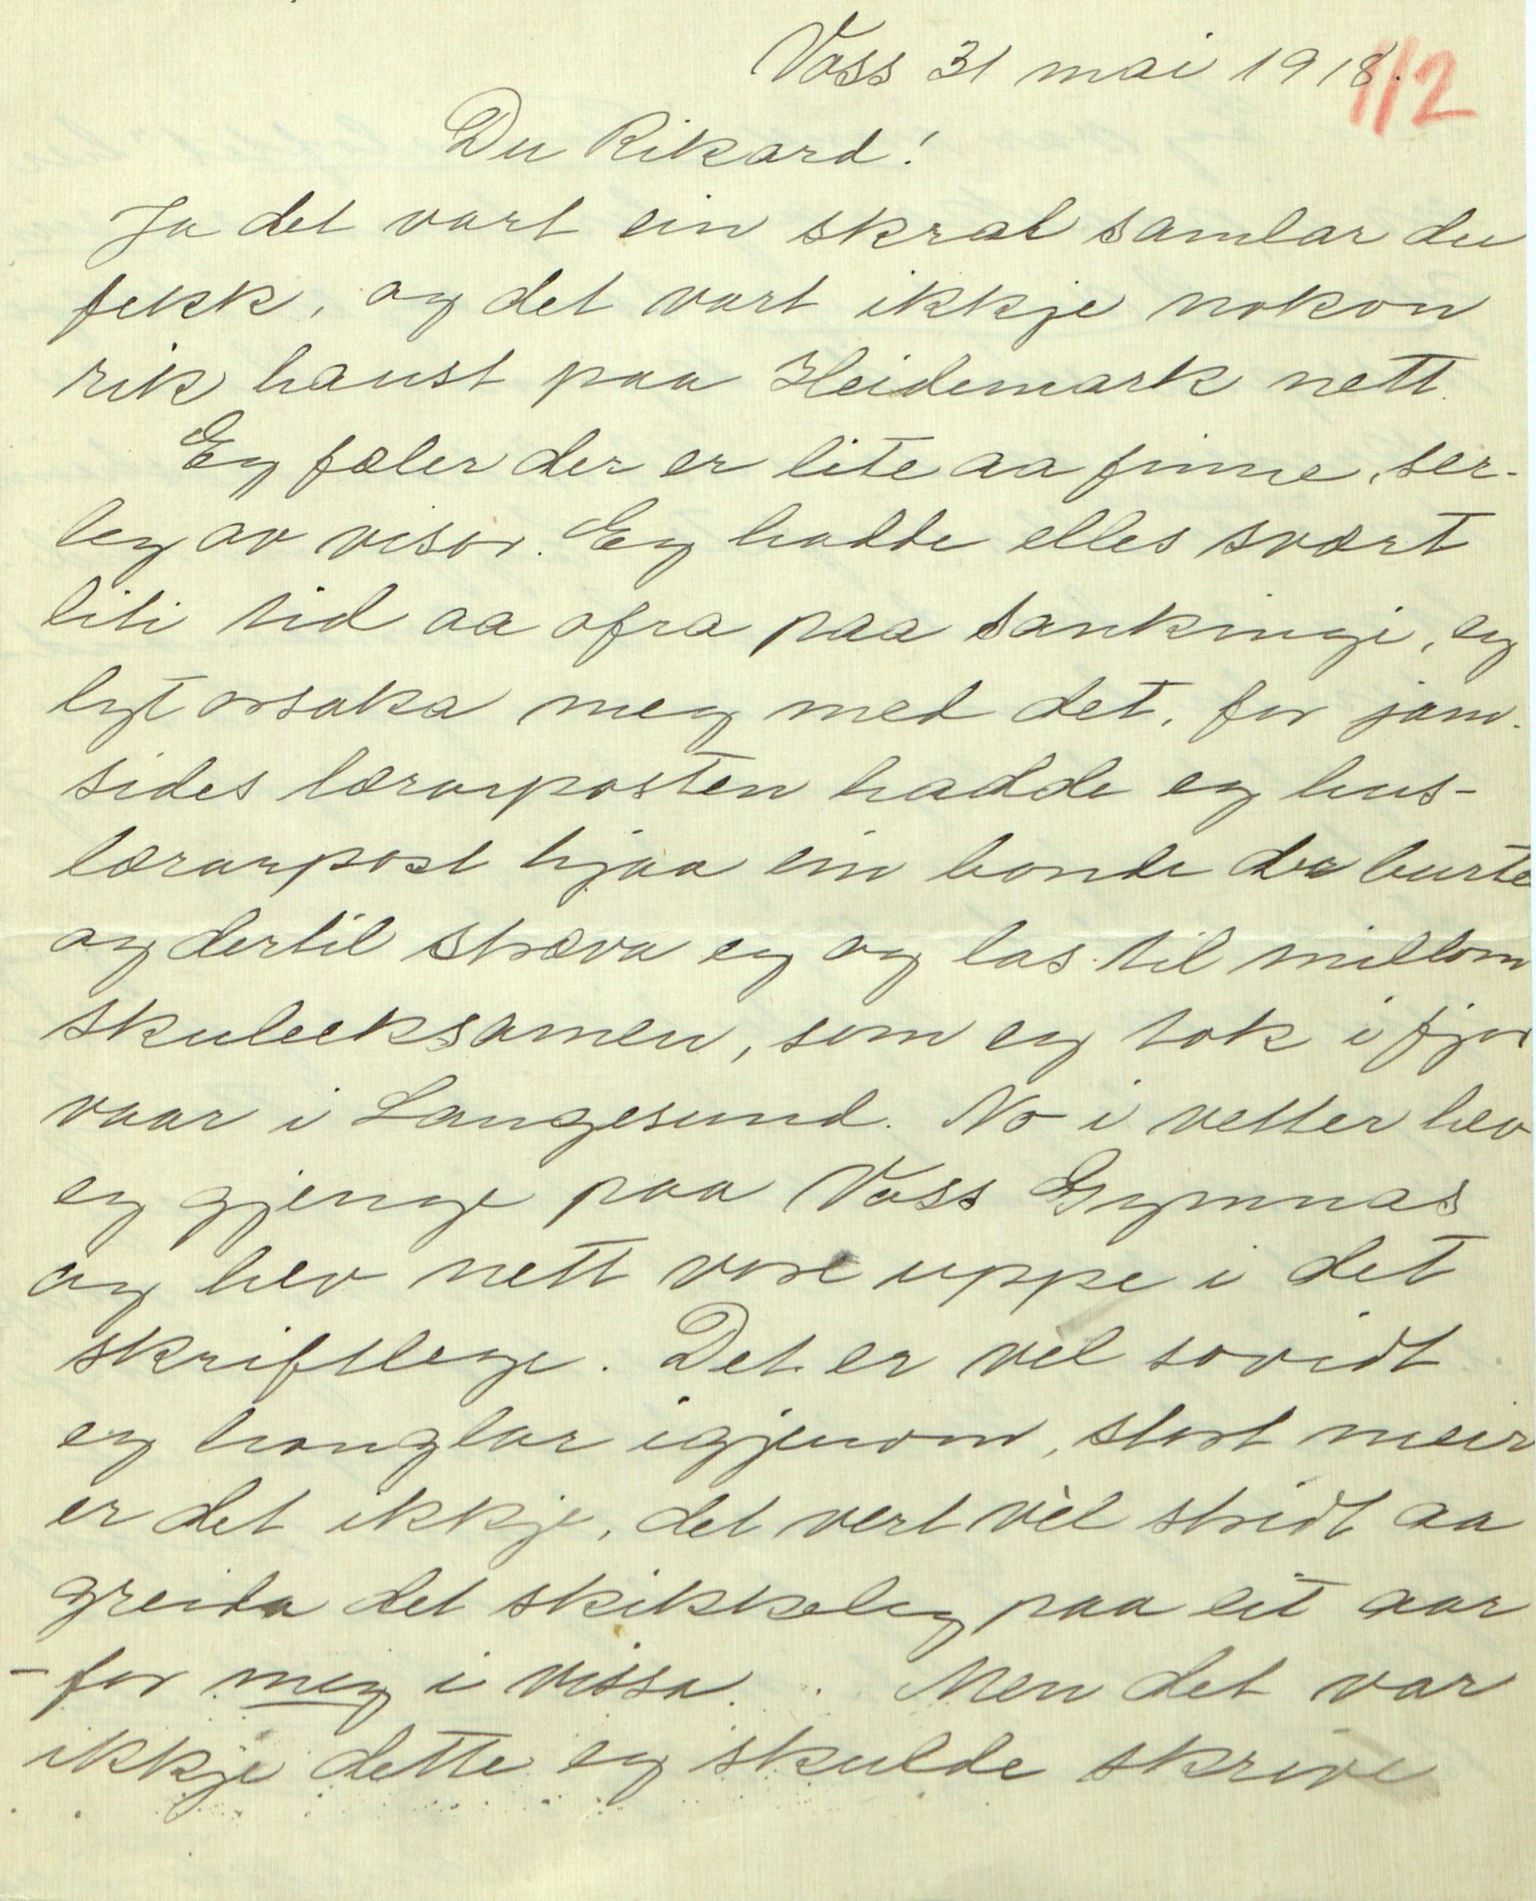 Voss 31 mai 1918.
112
Du Rikard!
Ja det vart ein skral samlar du
fekk, og det vart ikkje nokon
rik haust paa Heidemark nett.
Eg fæler der er lite aa finne, ser-
leg av visor. Eg hadde elles svært
liti tid aa ofra paa sankingi, eg
lyt orsaka meg med det, for jam-
sides lærarposten hadde eg hus-
lærarpost hjaa ein bonde der burte
og dertil stræva eg og las til millom
skuleeksamen, som eg tok i fjor
vaar i Langesund. No i vetter hev
eg gjenge paa Voss Gymnas
og hev nett vore uppe i det
skriftlege. Det er vel sovidt
eg hanglar igjenom, stort meir
er det ikkje, det vert vèl stridt aa
greida det skikkeleg paa eit aar
- for meg i vissa. Men det var
ikkje dette eg skulde skrive